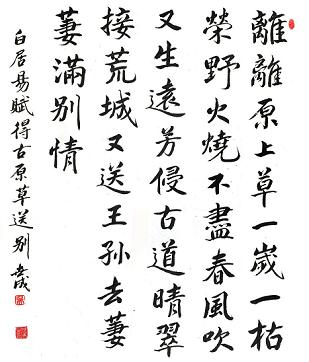 離離原上草一歲一枯
榮野火燒不盡春風吹
又生遠芳侵古道晴翠
接荒城又送王孫去萋
萋滿別情
白居易賦得古原草送別